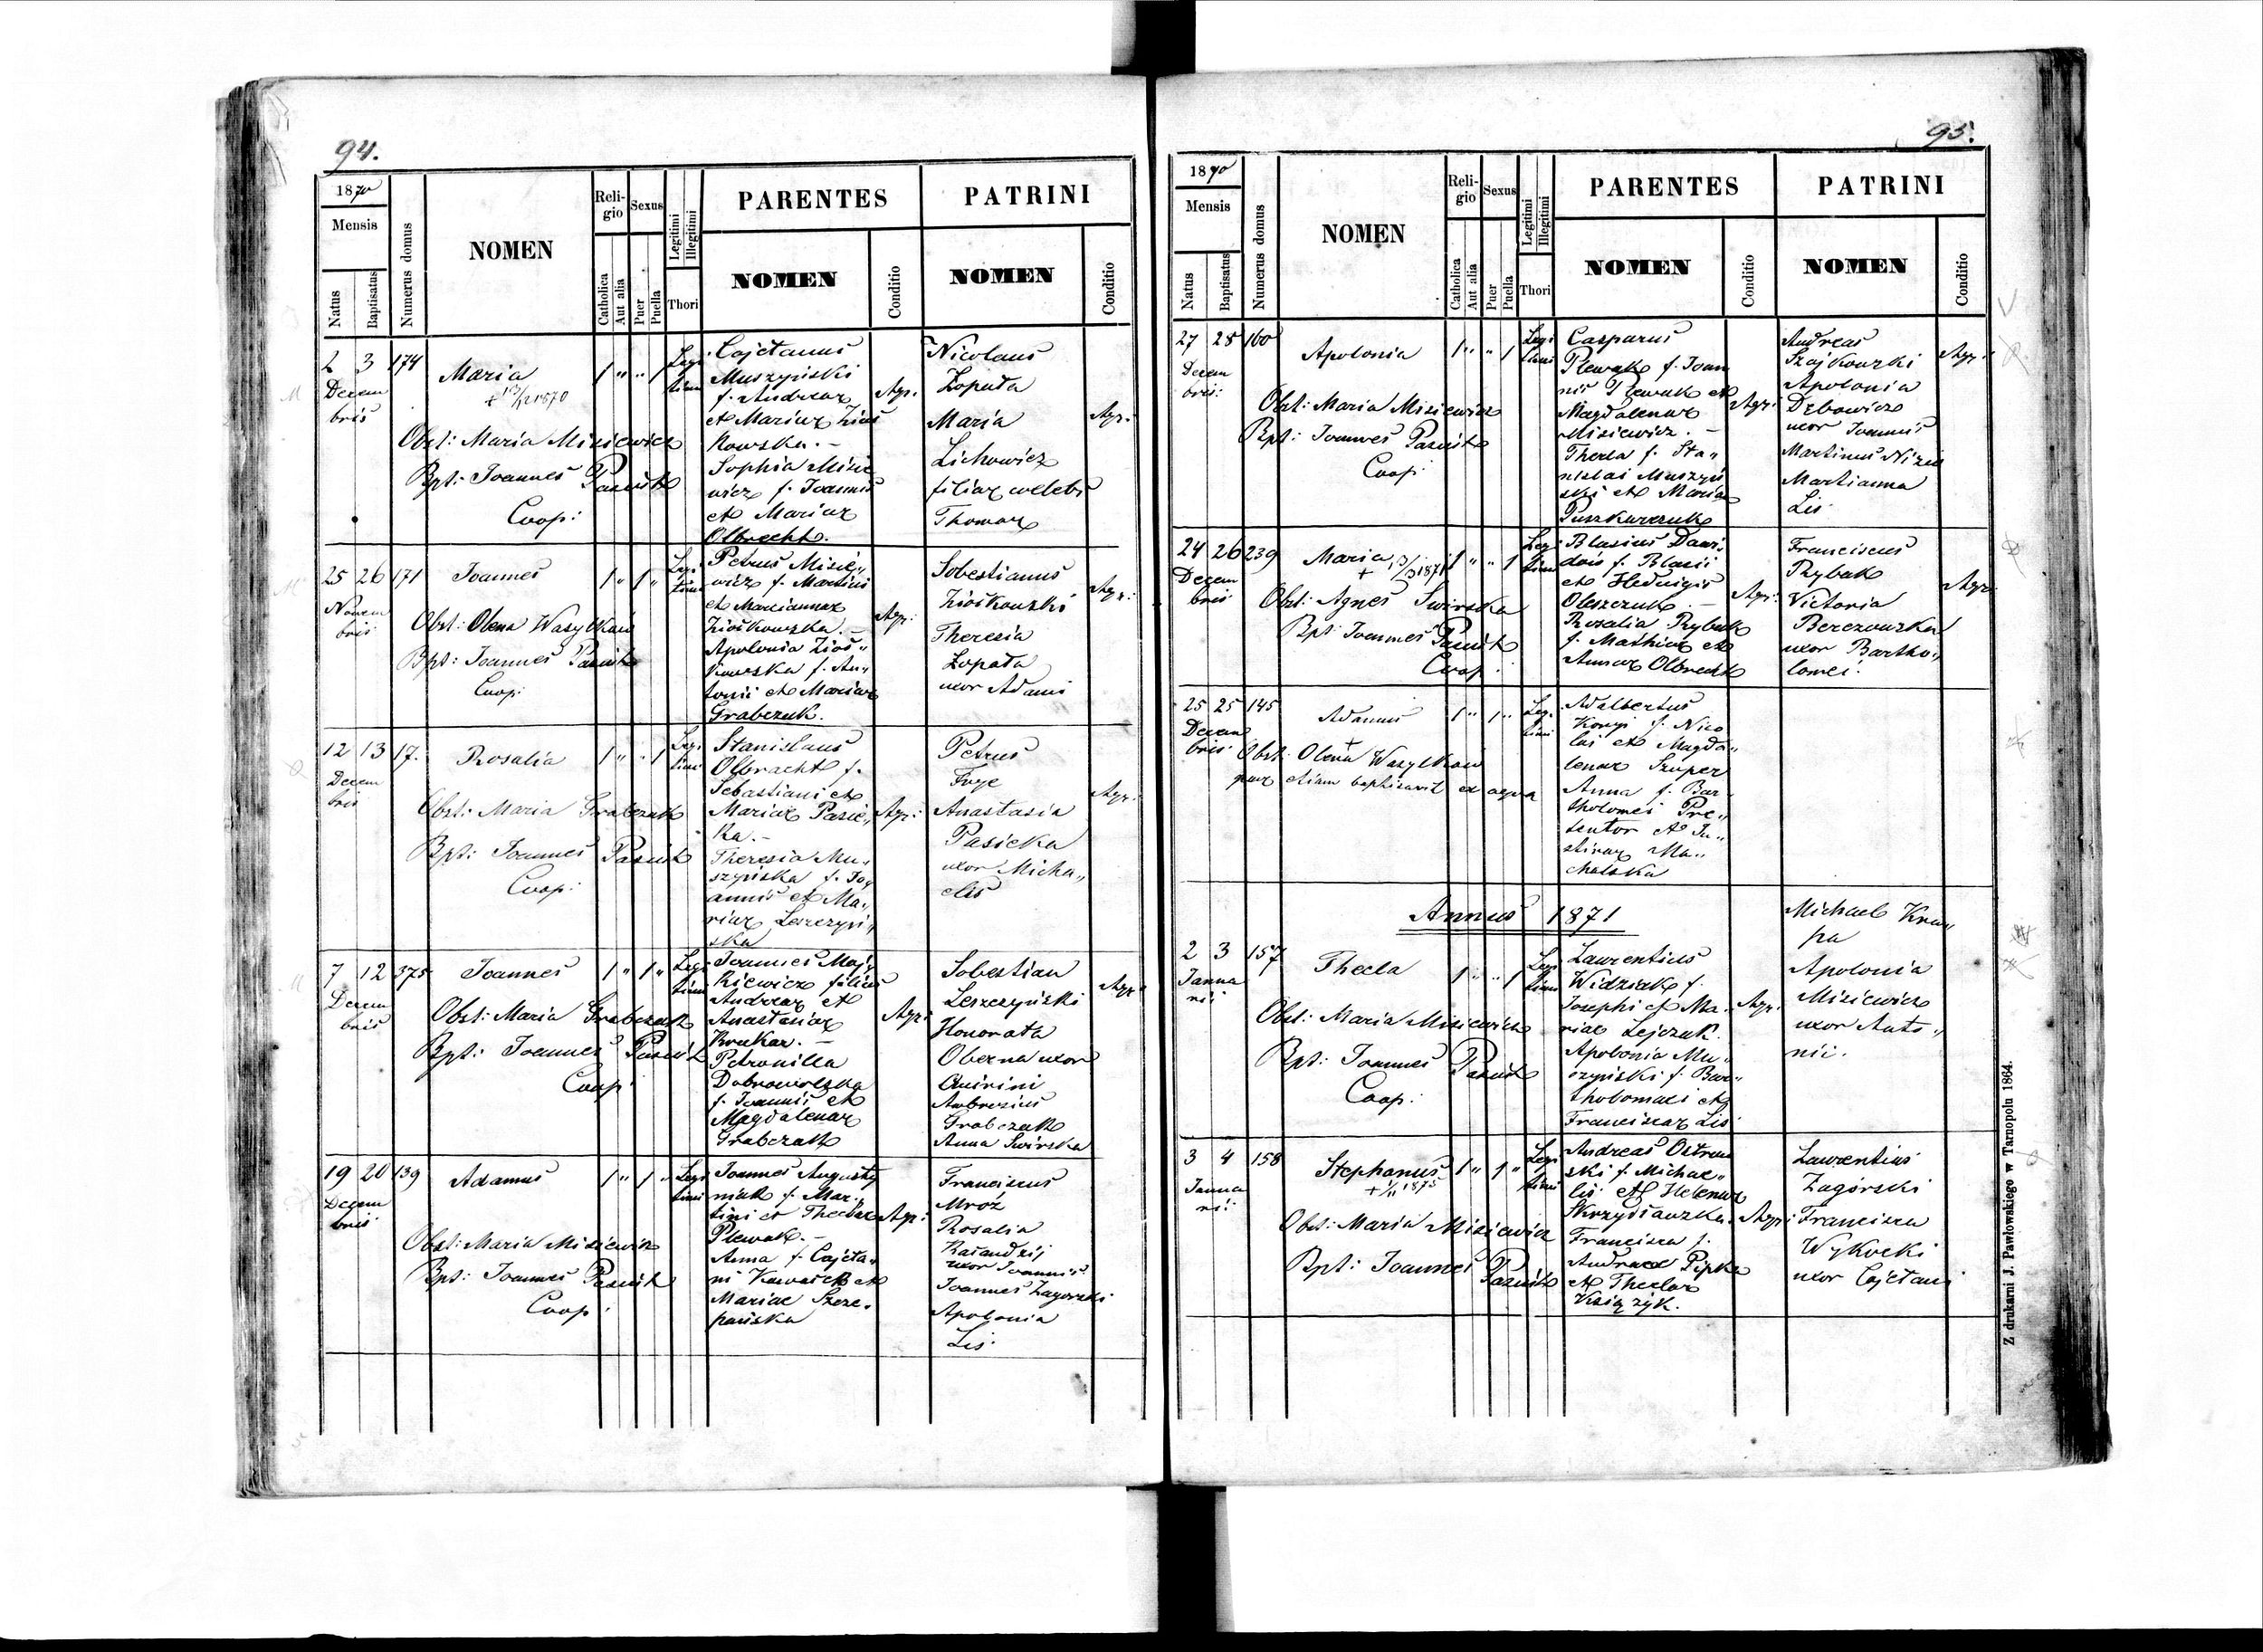 94.
1870
Mensis
Natus
Baptisatus
Numerus domus
NOMEN
Religio
Catholica
Aut alia
Sexus
Puer
Puella
Legitimi
Illegitimi
Thori
PARENTES
NOMEN
Conditio
PATRINI
NOMEN
Conditio
2 3 174
Decem
bris
Maria
Obst: Maria Misiewicz
Bpt: Joannes Pasiut
Coop:
1 " " 1
Legi
timi
Cajetanus
Muszyński
f. Andreae
et Mariae Zioł
kowska. -
Sophia Misie
wicz f. Joannis
et Mariae
Olbrecht.
Agr:
Nicolaus
Łopata
Maria
Lichowicz
filiae
Thomae
Agr:
25 26 171
Novem
bris
Joannes
Obst: Olena Wasylków
Bpt: Joannes Pasiut
Coop:
1 " 1 "
Legi
timi
Petrus Misie„
wicz f. Martini
et Mariannae
Ziołkowska. -
Apolonia Zioł„
kowska f. An„
tonii et Mariae
Grabczuk.
Agr:
Sobestianus
Ziołkowski
Theresia
Łopata
uxor Adami
Agr:
12 13 17.
Decem
bris
Rosalia
Obst: Maria Grabczuk
Bpt: Joannes Pasiut
Coop:
1 " " 1
Legi
timi
Stanislaus
Olbracht f.
Sebastiani et
Mariae Pasie„
ka. -
Theresia Mu„
szyńska f. Jo„
annis et Ma„
riae Leszczyń„
ska
Agr:
Petrus
Anastasia
Pasieka
uxor Micha„
elis
Agr:
7 12 375
Decem
bris
Joannes
Obst: Maria Grabczuk
Bpt: Joannes Pasiut
Coop:
1 " 1 "
Legi
timi
Joannes Maj„
kiewicz filius
Andreae et
Anastasiae
Petronilla
Dobrowolska
f. Joannis et
Magdalenae
Grabczuk
Agr:
Sobestian
Leszczyński
Honorata
Oberna uxor
Quirini
Ambrosius
Grabczuk
Anna Swirska
Agr:
19 20 139
Decem
bris
Adamus
Obst: Maria Misiewicz
Bpt: Joannes Pasiut
Coop:
1 " 1 "
Legi
timi
Joannes Augusty
niak f. Mar„
tini et Theclae
Plewak. -
Anna f. Cajeta„
ni
Mariae Szcze„
pańska
Agr:
Franciscus
Mróz
Rosalia
uxor Joannis
Joannes Zagorski
Apolonia
Lis.
95.
1870
Mensis
Natus
Baptisatus
Numerus domus
NOMEN
Religio
Catholica
Aut alia
Sexus
Puer
Puella
Legitimi
Illegitimi
Thori
PARENTES
NOMEN
Conditio
PATRINI
NOMEN
Conditio
27 28 160
Decem
bris:
Apolonia
Obst: Maria Misiewicz
Bpt: Joannes Pasiut
Coop:
1 " " 1
Legi
timi
Casparus
Plewak f. Joan
nis Plewak et
Magdalenae
Misiewicz. -
Thecla f. Sta„
nislai Muszyń
ski et Mariae
Puszkarczuk
Agr:
Andreas
Szajkowski
Apolonia
Dębowicz
uxor Joannis
Martinus
Martianna
Lis
Agr:
24 26 239
Decem
bris
Maria
Obst: Agnes Swirska
Bpt: Joannes Pasiut
Coop:
1 " " 1
Legi
timi
Blasius Dawi„
dois f. Blasii
et Hedwigis
Oleszczuk. -
Rosalia Rybak
f. Mathiae et
Annae Olbrecht
Agr:
Franciscus
Rybak
Victoria
Berezowska
uxor Bartho„
lomei.
Agr:
25 25 145
Decem
bris
Adamus
+
Obst: Olena Wasylków
quae etiam baptisavit ex aqua
1 " 1 "
Legi
timi
Adalbertus
f. Nico
lai et Magda„
lenae Szuper
Anna f. Bar„
tholomei Pre„
tentor et Ju„
stinae Ma„
chalska
Annus 1871
2 3 157
Janua
rii
Thecla
Obst: Maria Misiewicz
Bpt: Joannes Pasiut
Coop:
1 " " 1
Legi
timi
Laurentius
Widziak f.
Josephi et Ma„
riae Zejczuk.
Apolonia Mu„
szyński f. Bar„
tholomaei et
Franciscae Lis
Agr:
Michael Kru„
pa
Apolonia
Misiewicz
uxor Anto„
nii.
3 4 158
Janua
rii
Stephanus
Obst: Maria Misiewicz
Bpt: Joannes Pasiut
1 " 1 "
Legi
timi
Andreas Ostrow
ski f. Michae„
lis et Helenae
Francisca f.
Andreae Pipka
et Theclae
Książyk.
Agr:
Laurentius
Zagórski
Francisca
Wykocki
uxor Cajetani
Z drukarni J. Pawłowskiego w Tarnopolu 1864.